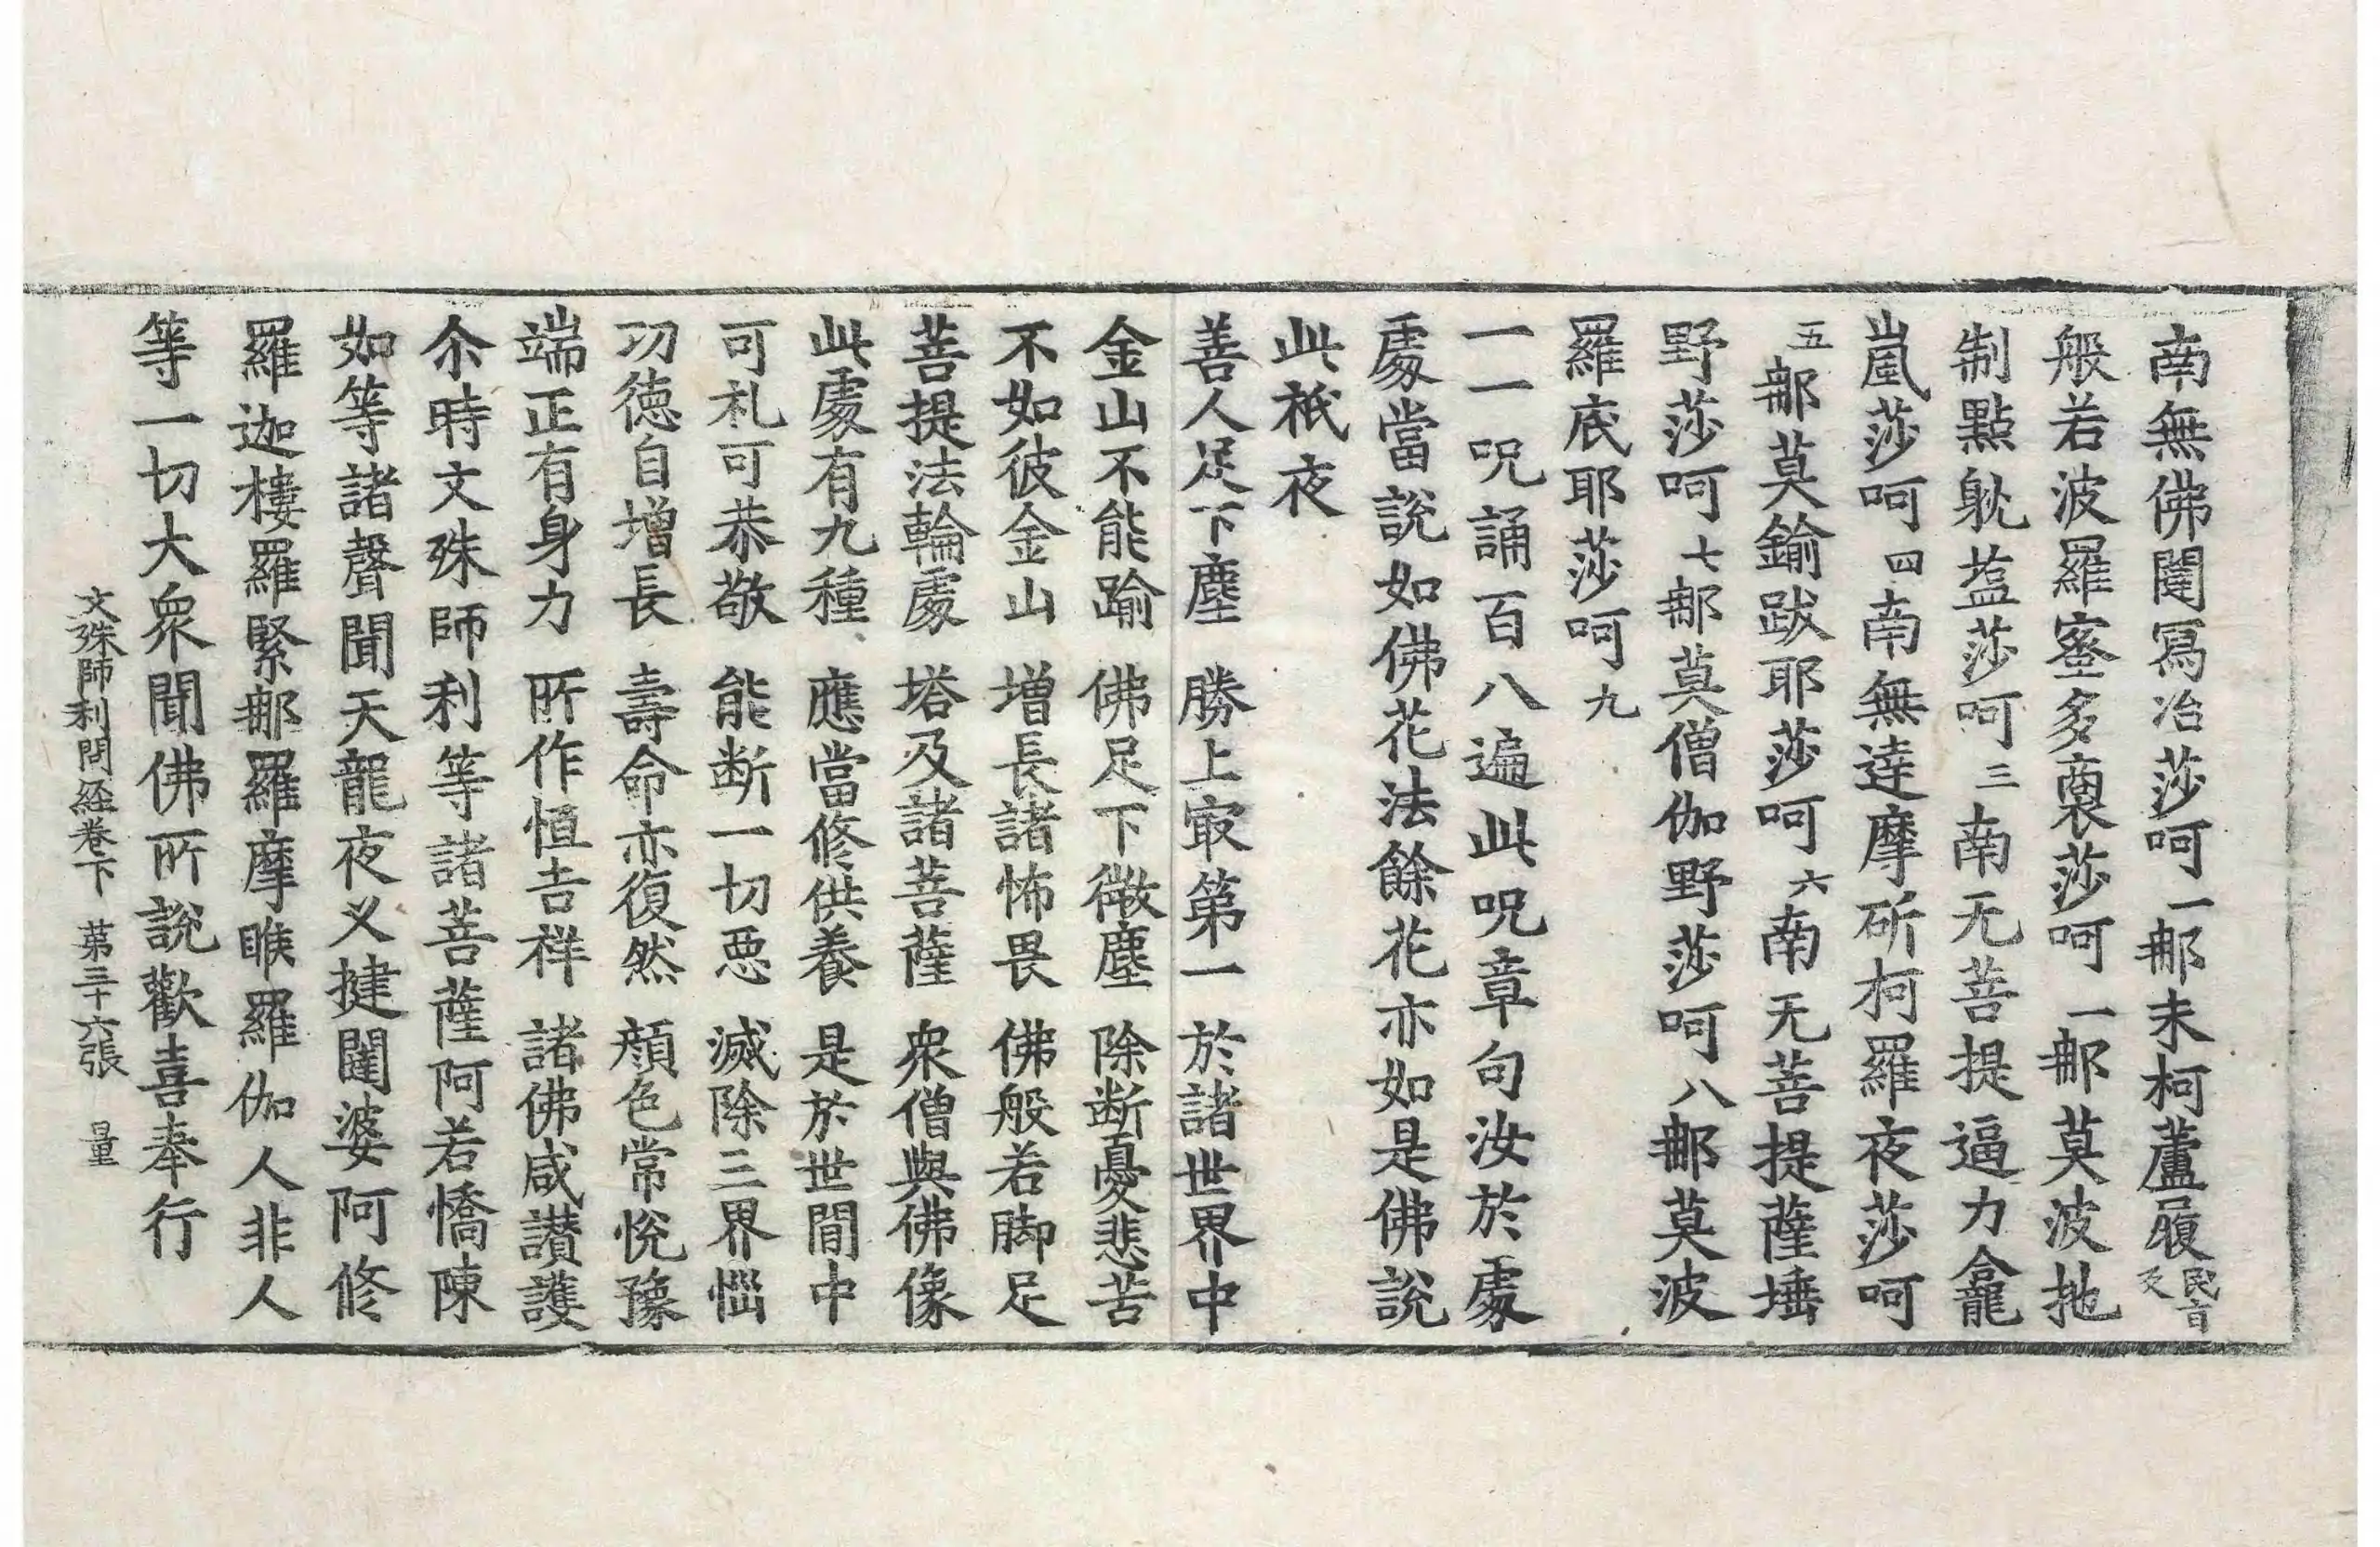 南無佛闥寫冶莎呵一䣑未柯蘆履民音反
般若波羅蜜多裒莎呵一䣑莫波扡
制點躭塩莎呵三南无菩提逼力龕
嵐莎呵四南無達摩斫柯羅夜莎呵
五䣑莫鍮跋耶莎呵六南无菩提薩埵
野莎呵七䣑莫僧伽野莎呵八䣑莫波
羅底耶莎呵九
一一呪誦百八遍此呪章句汝於處
處當說如佛花法餘花亦如是佛說
此秖夜
善人足下塵　勝上㝡第一　於諸世界中
金山不能踰　佛足下微塵　除断憂悲苦
不如彼金山　增長諸怖畏　佛般若脚足
菩提法輪處　塔及諸菩薩　衆僧與佛像
此處有九種　應當修供養　是於世間中
可礼可恭敬　能断一切惡　滅除三界惱
功德自增長　壽命亦復然　顔色常悅豫
端正有身力　所作恒吉祥　諸佛咸讃護
尒時文殊師利等諸菩薩阿若憍陳
如等諸聲聞天龍夜叉揵闥婆阿修
羅迦樓羅緊䣑羅摩睺羅伽人非人
等一切大衆聞佛所說歡喜奉行
文殊師利問経卷下　第三十六張　量